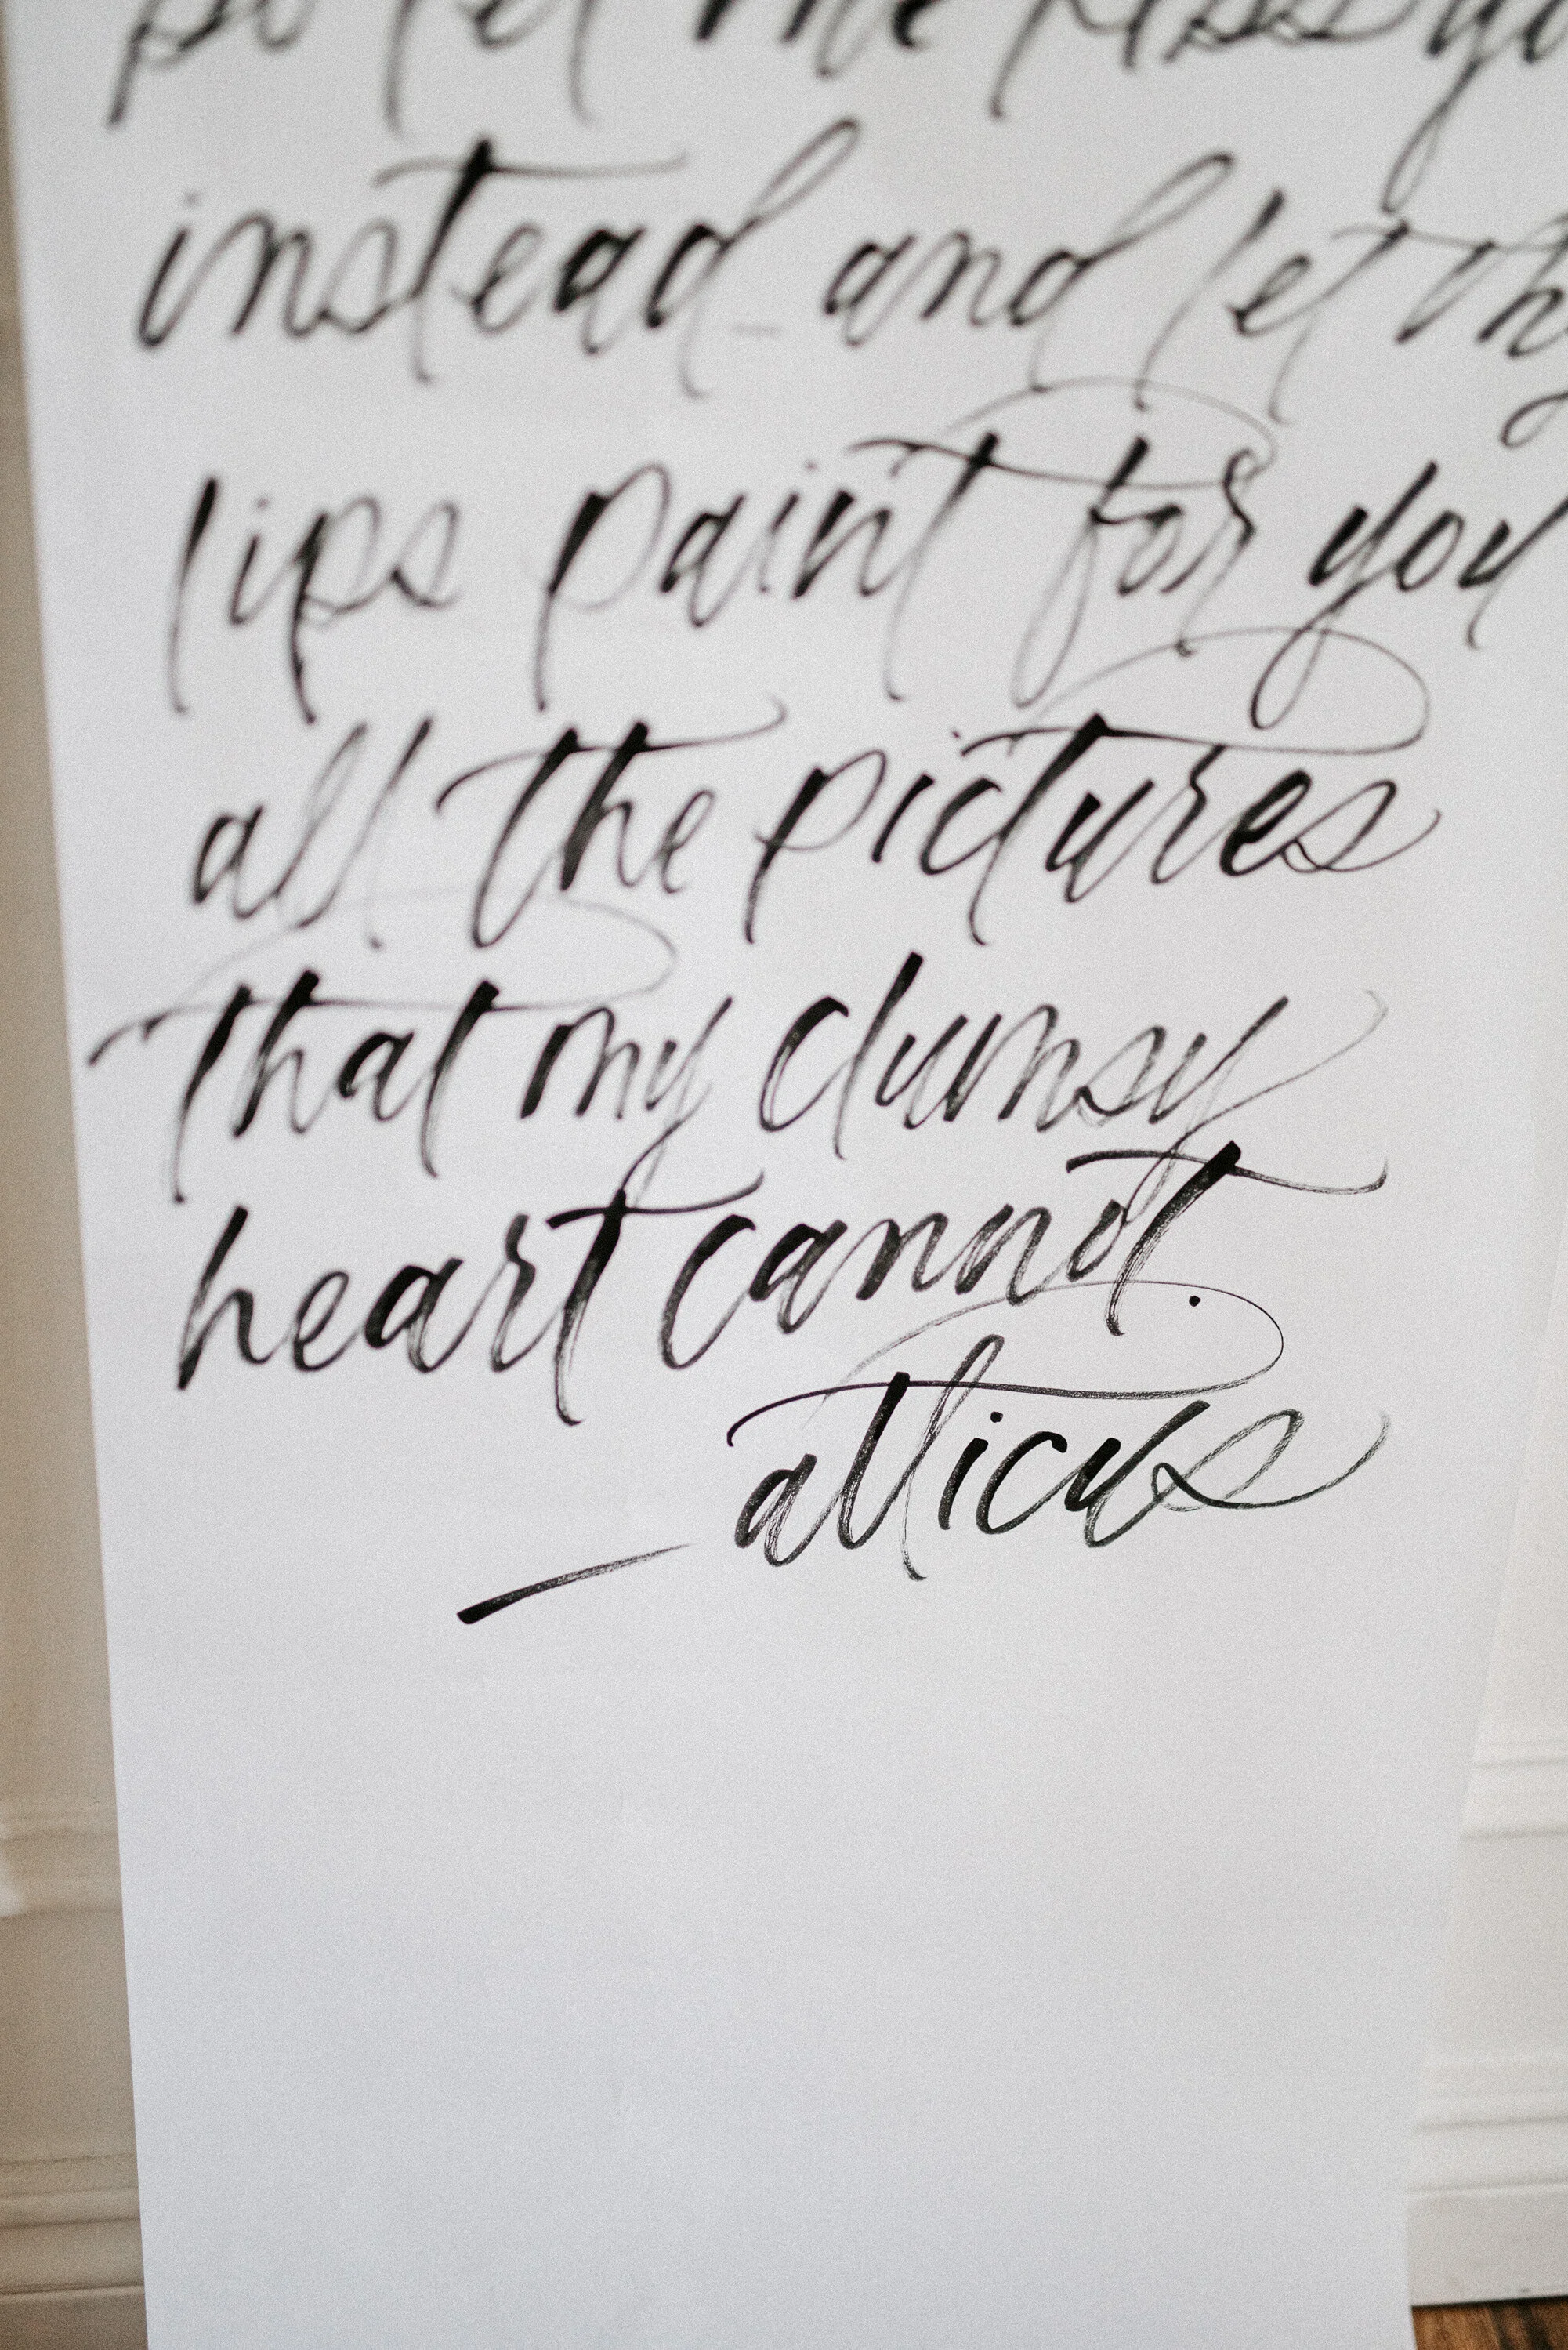 so let me kiss yo
instead and let my
lips paint for you
all the pictures
that my clumsy
heart cannot.
— atticus